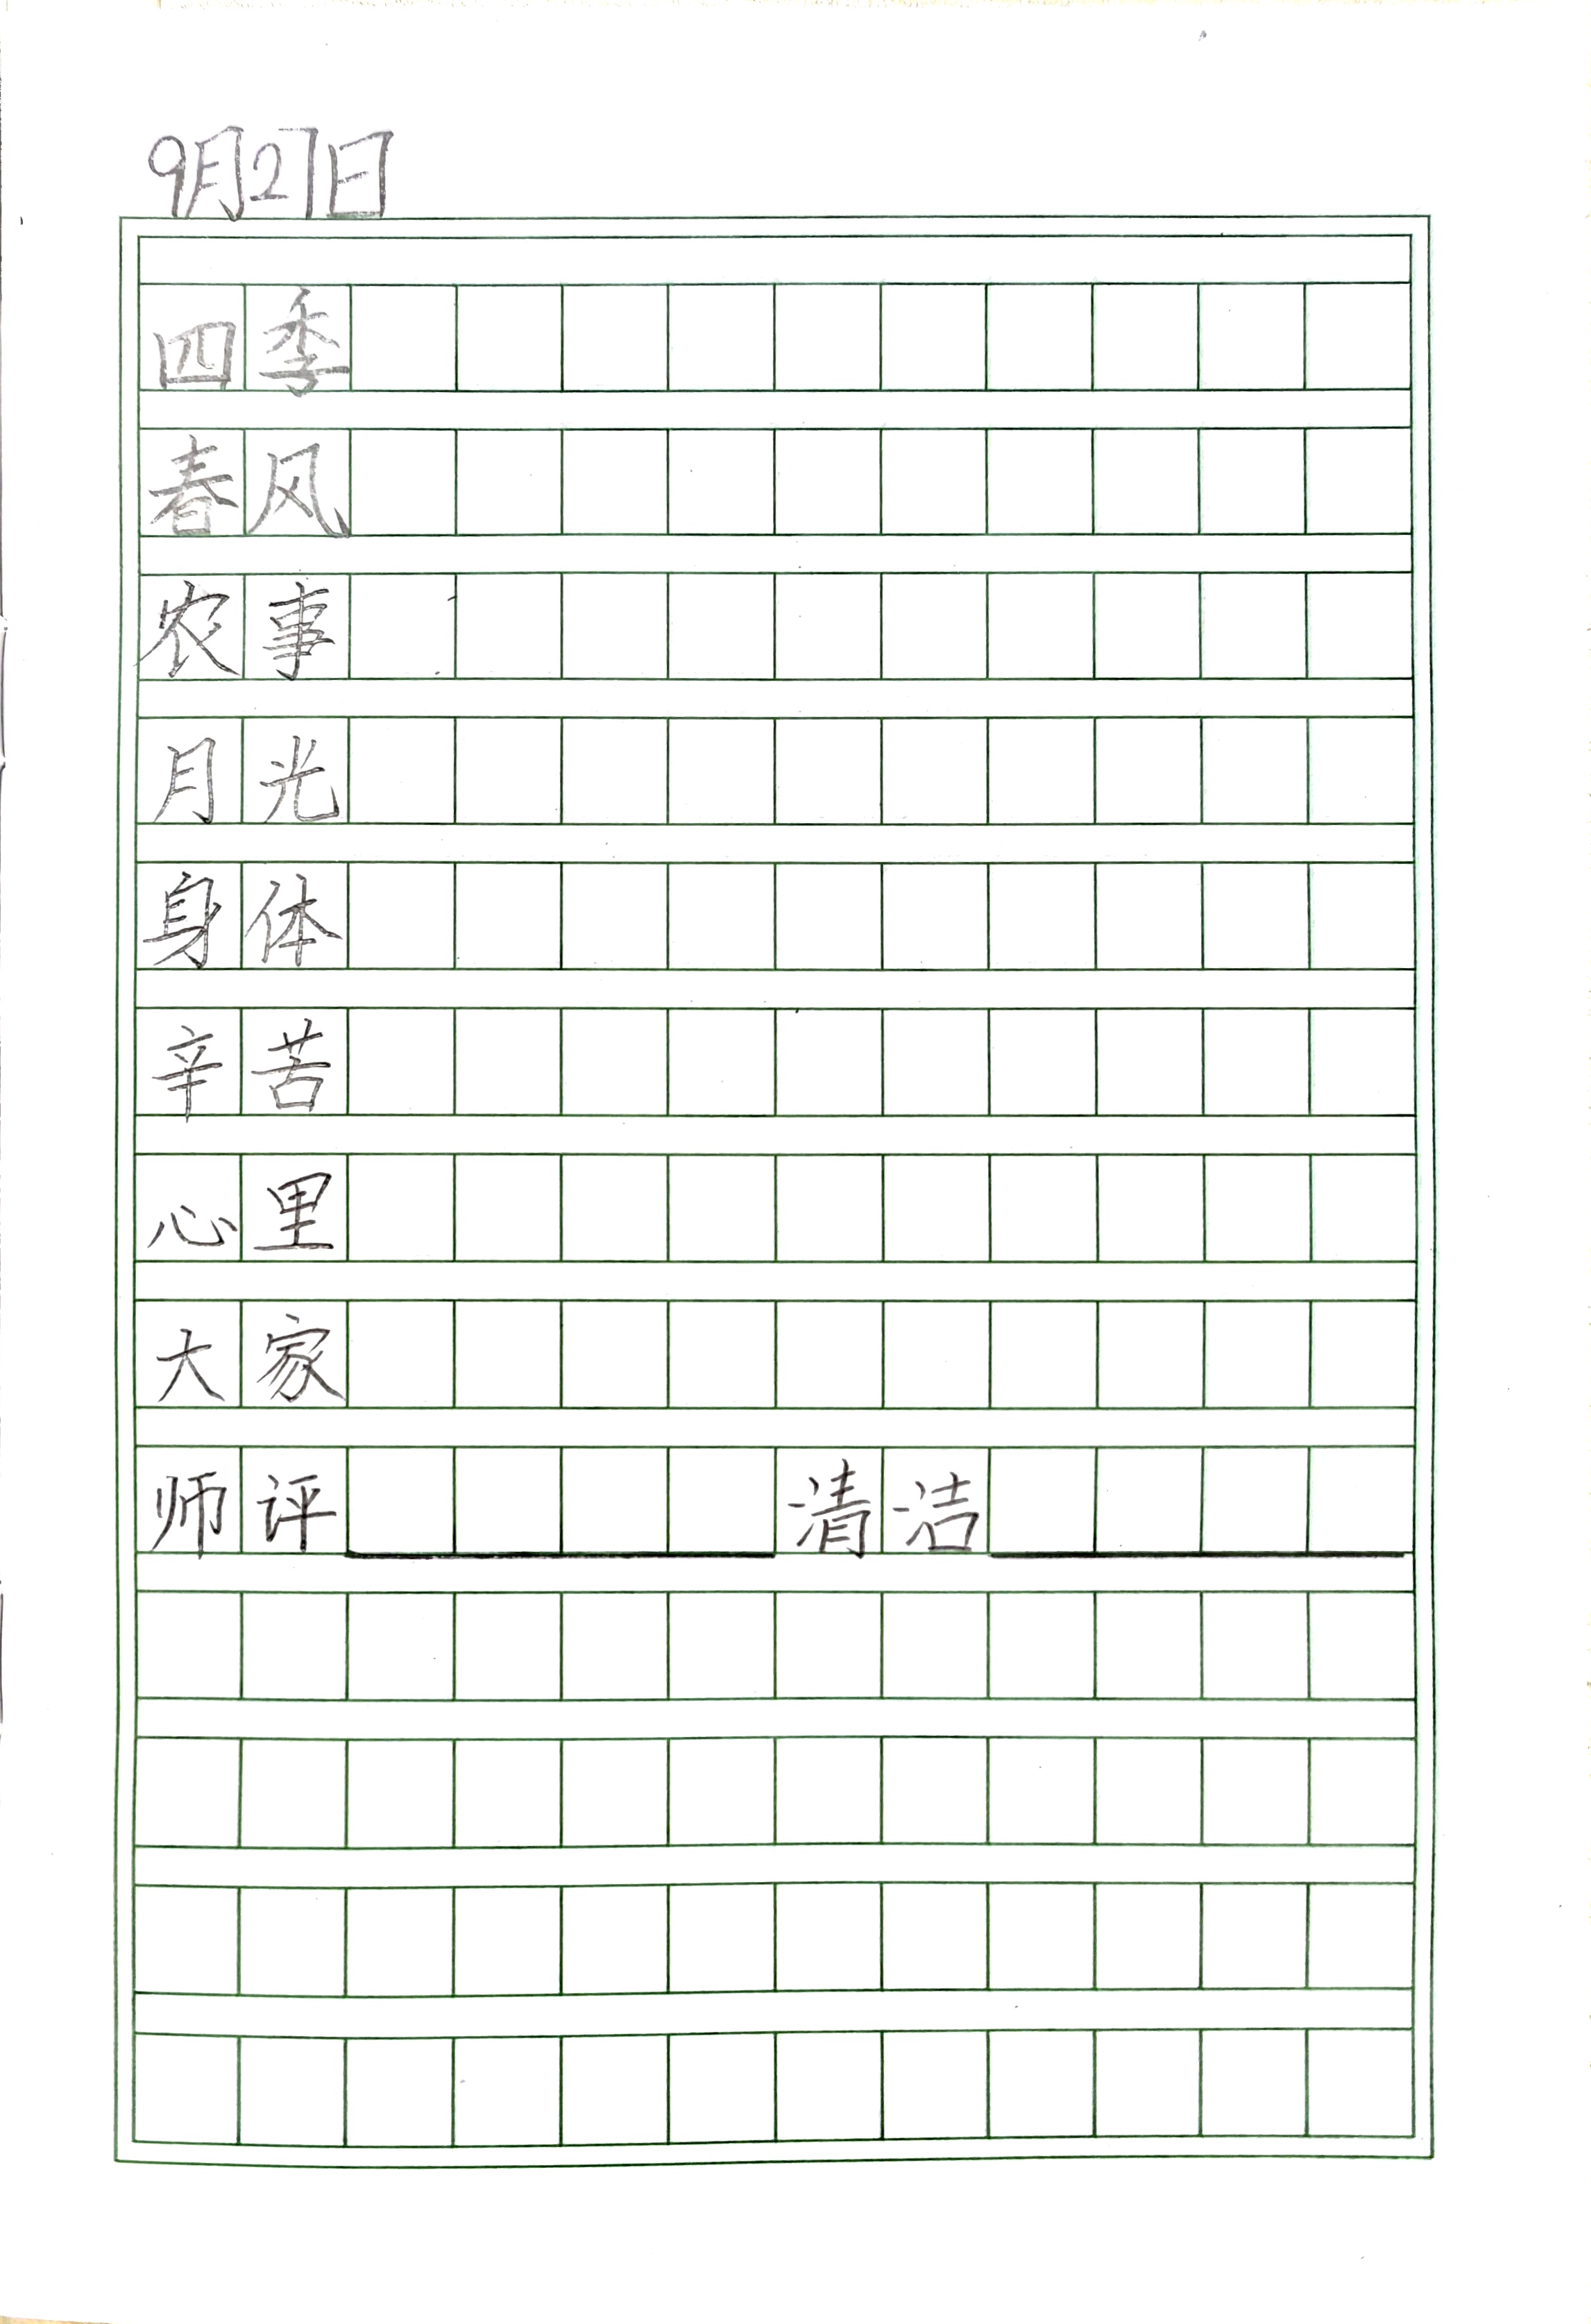 9月27日
四季
春风
农事
月光
身体
辛苦
心里
大家
师评 清洁